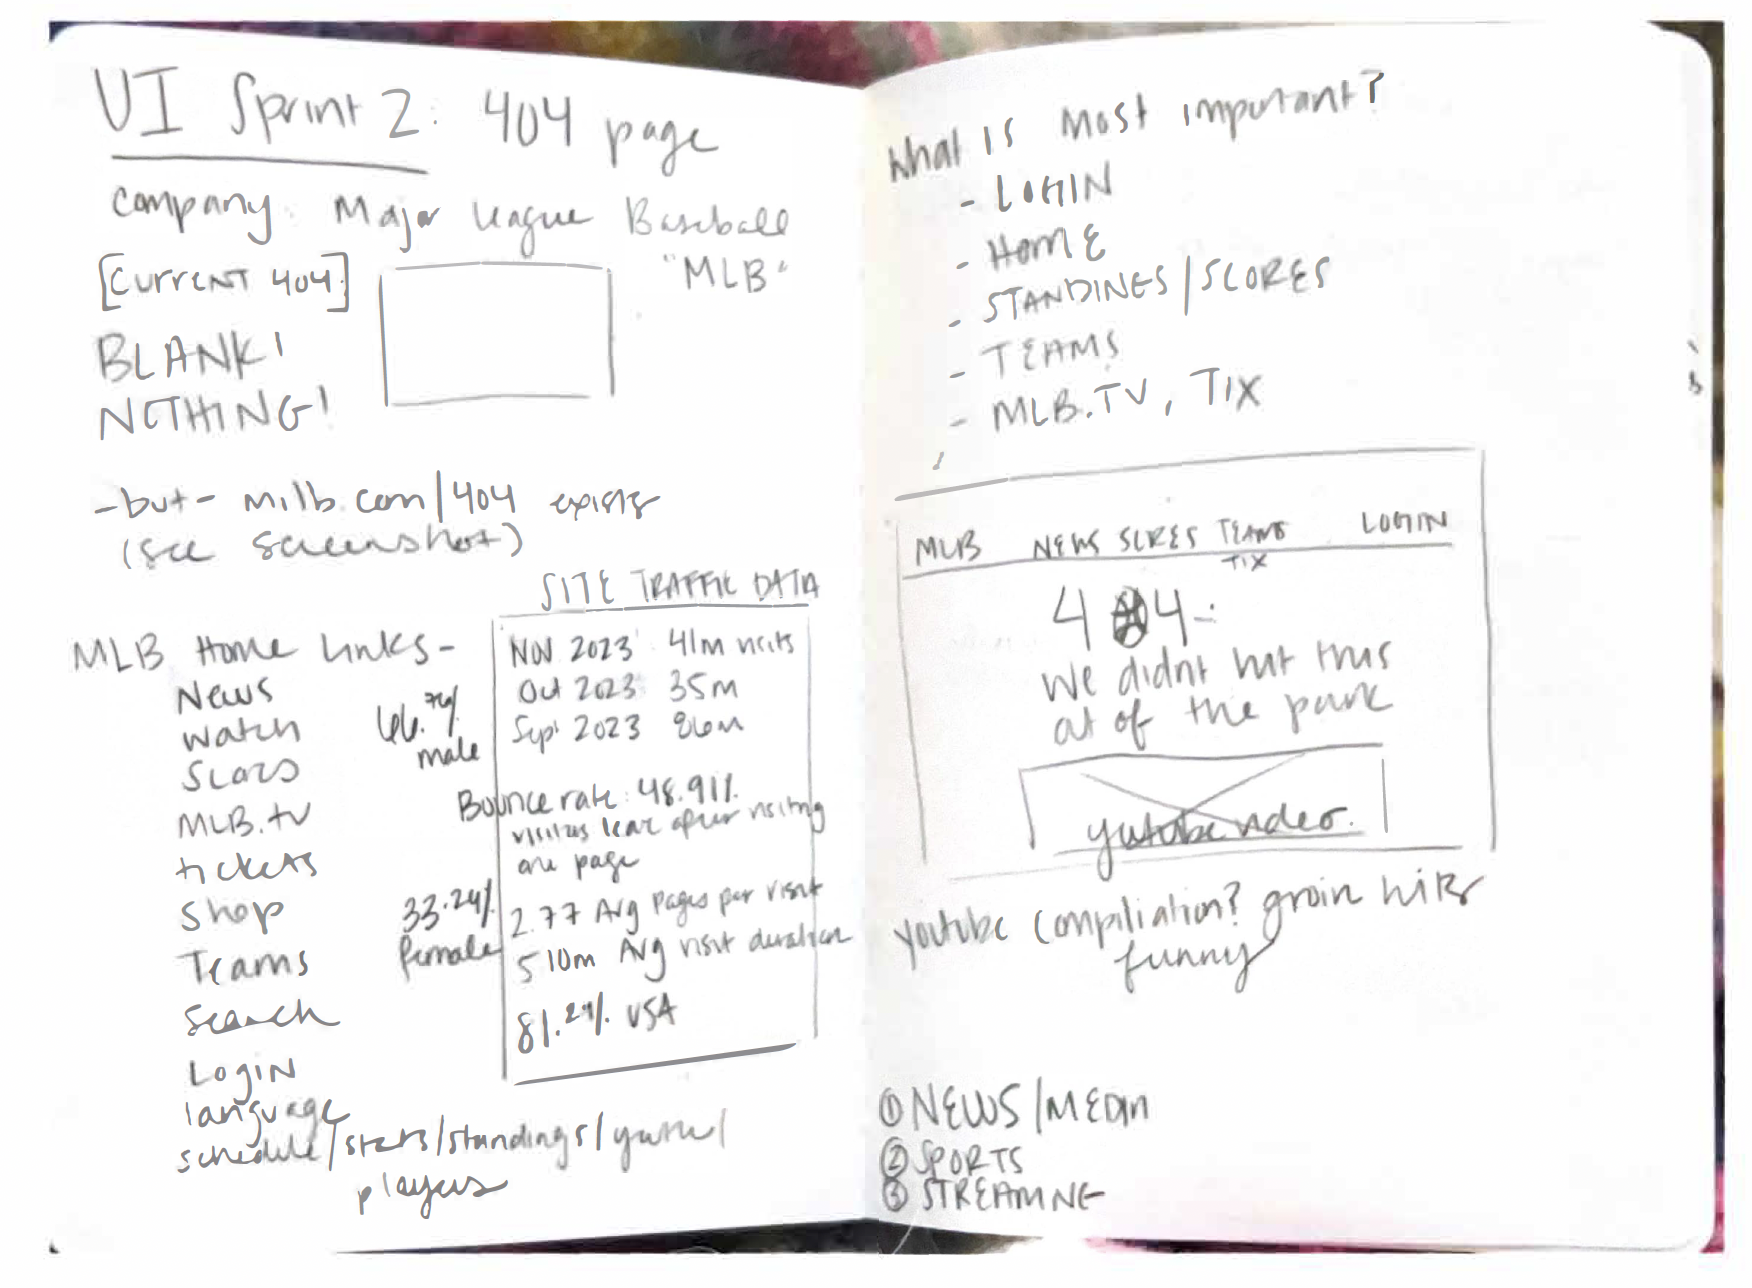 UI Sprint 2: 404 page
Company: Major League Baseball
"MLB"
[Current 404]
BLANK!
NOTHING!
-but- milb.com/404 exists
(see screenshot)
SITE TRAFFIC DATA
Nov 2023: 41m visits
Oct 2023: 35m
Sept 2023 86m
Bounce rate: 48.91%
visitors leave after visiting
one page
2.77 Avg pages per visit
5 10m Avg visit duration
81.29% USA
66.76%
male
33.24%
female
MLB Home Links -
News
Watch
Scores
MLB.tv
tickets
Shop
Teams
Search
Login
language
schedule/stats/standings/youth/
players
What is most important?
- LOGIN
- HOME
- STANDINGS/SCORES
- TEAMS
- MLB.TV, TIX
MLB NEWS SCRES TEAMS LOGIN
TIX
404
We didnt hit this
at of the park
youtube video.
youtube compiliation? groin hits
funny
① NEWS/MEDIA
② SPORTS
③ STREAMNG